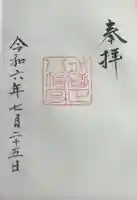 奉拝
令和六年七月二十五日